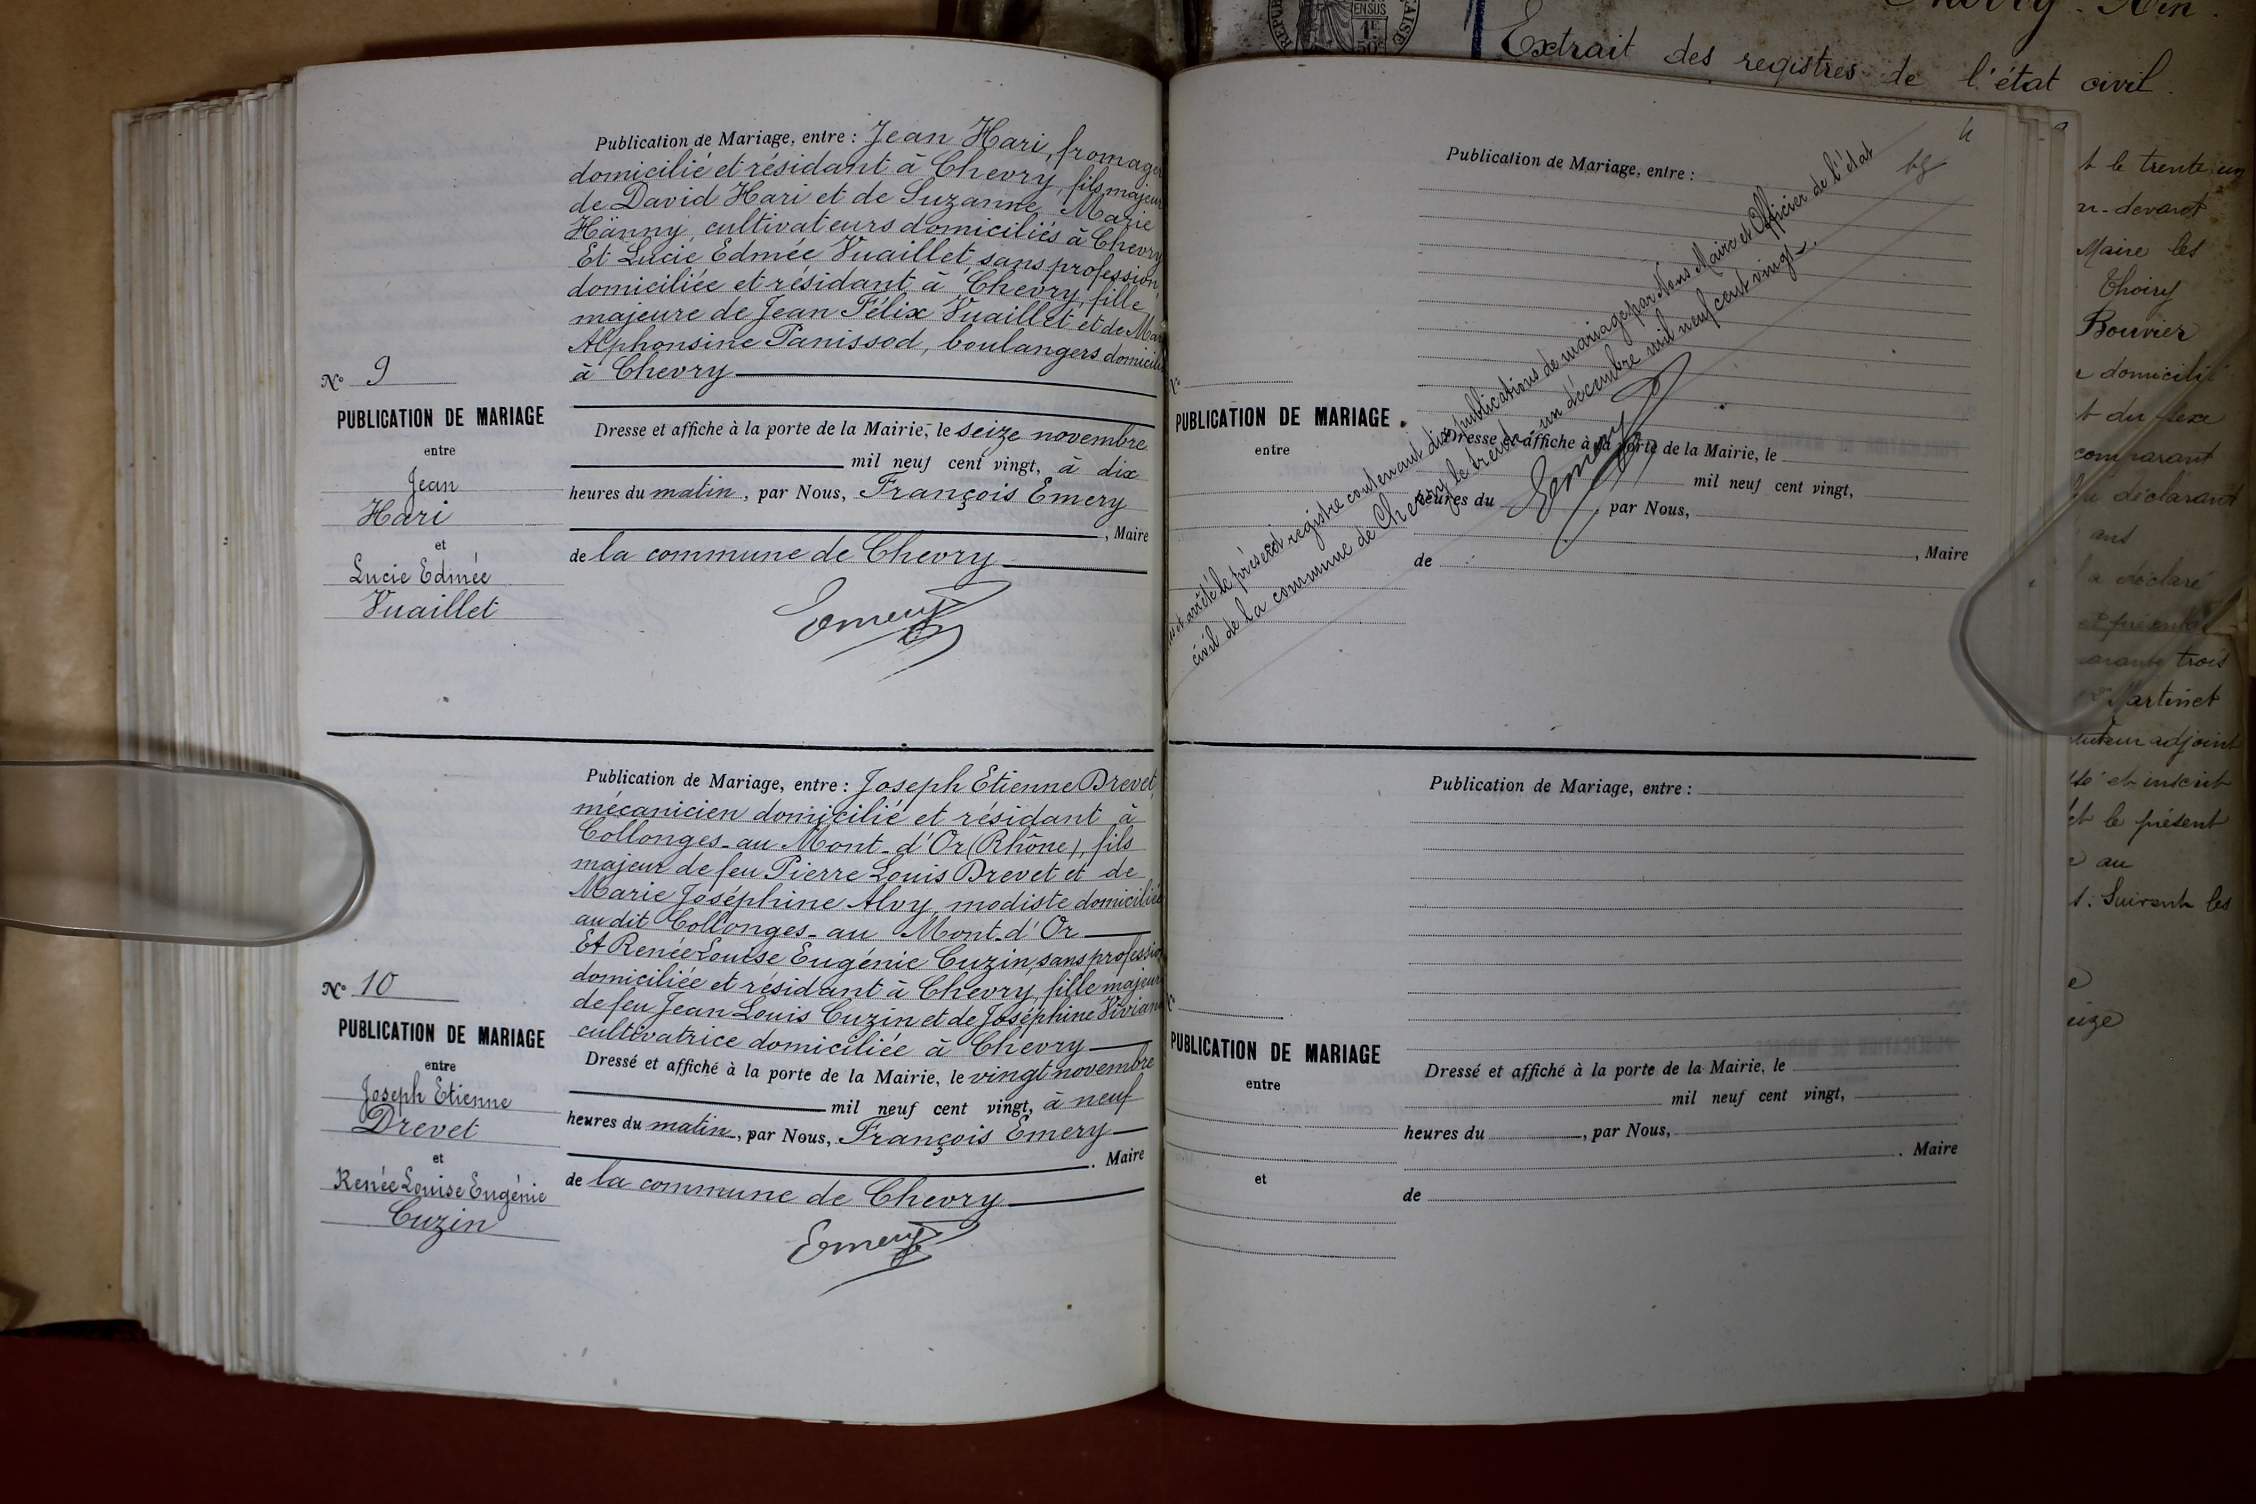 N° 9
PUBLICATION DE MARIAGE
entre
Jean
Hari
et
Lucie Edmée
Vuaillet
Publication de Mariage, entre : Jean Hari, fromager
domicilié et résidant à Chevry, fils majeur
de David Hari et de Suzanne Marie
Hänny, cultivateurs domiciliés à Chevry
Et Lucie Edmée Vuaillet sans profession,
domiciliée et résidant à Chevry, fille
majeure de Jean Félix Vuaillet et de
Alphonsine Panissod, boulangers
à Chevry
Dresse et affiche à la porte de la Mairie, le seize novembre
mil neuf cent vingt, à dix
heures du matin, par Nous, François Emery
, Maire
de la commune de Chevry
Emery
N° 10
PUBLICATION DE MARIAGE
entre
Joseph Etienne
Drevet
et
Renée Louise Eugénie
Cuzin
Publication de Mariage, entre : Joseph Etienne Drevet,
mécanicien domicilié et résidant à
Collonges-au Mont-d'Or (Rhône), fils
majeur de feu Pierre Louis Drevet et de
Marie Joséphine Alvy, modiste domiciliée
au dit Collonges-au Mont-d'Or
Et Renée Louise Eugénie Cuzin, sans profession
domiciliée et résidant à Chevry, fille majeure
de feu Jean Louis Cuzin et de Joséphine
cultivatrice domiciliée à Chevry
Dressé et affiché à la porte de la Mairie, le vingt novembre
mil neuf cent vingt, à neuf
heures du matin, par Nous, François Emery
. Maire
de la commune de Chevry
Emery
Publication de Mariage, entre :
PUBLICATION DE MARIAGE
entre
Dresse et affiche à la porte de la Mairie, le
mil neuf cent vingt,
heures du , par Nous,
, Maire
de
et arrêté le présent registre contenant dix publications de mariage par Nous Maire et Officier de l'état
civil de la commune de Chevry le trente-un décembre mil neuf cent vingt.
Emery
Publication de Mariage, entre :
PUBLICATION DE MARIAGE
entre
et
Dressé et affiché à la porte de la Mairie, le
mil neuf cent vingt,
heures du , par Nous,
. Maire
de
Extrait des registres de l'état civil.
t le trente un
devant
Maire les
Thoiry
Bouvier
domicilié
t du sexe
comparant
déclarant
ans
a déclaré
trois
Martinet
adjoint
et inscrit
et le présent
au
Suivent les